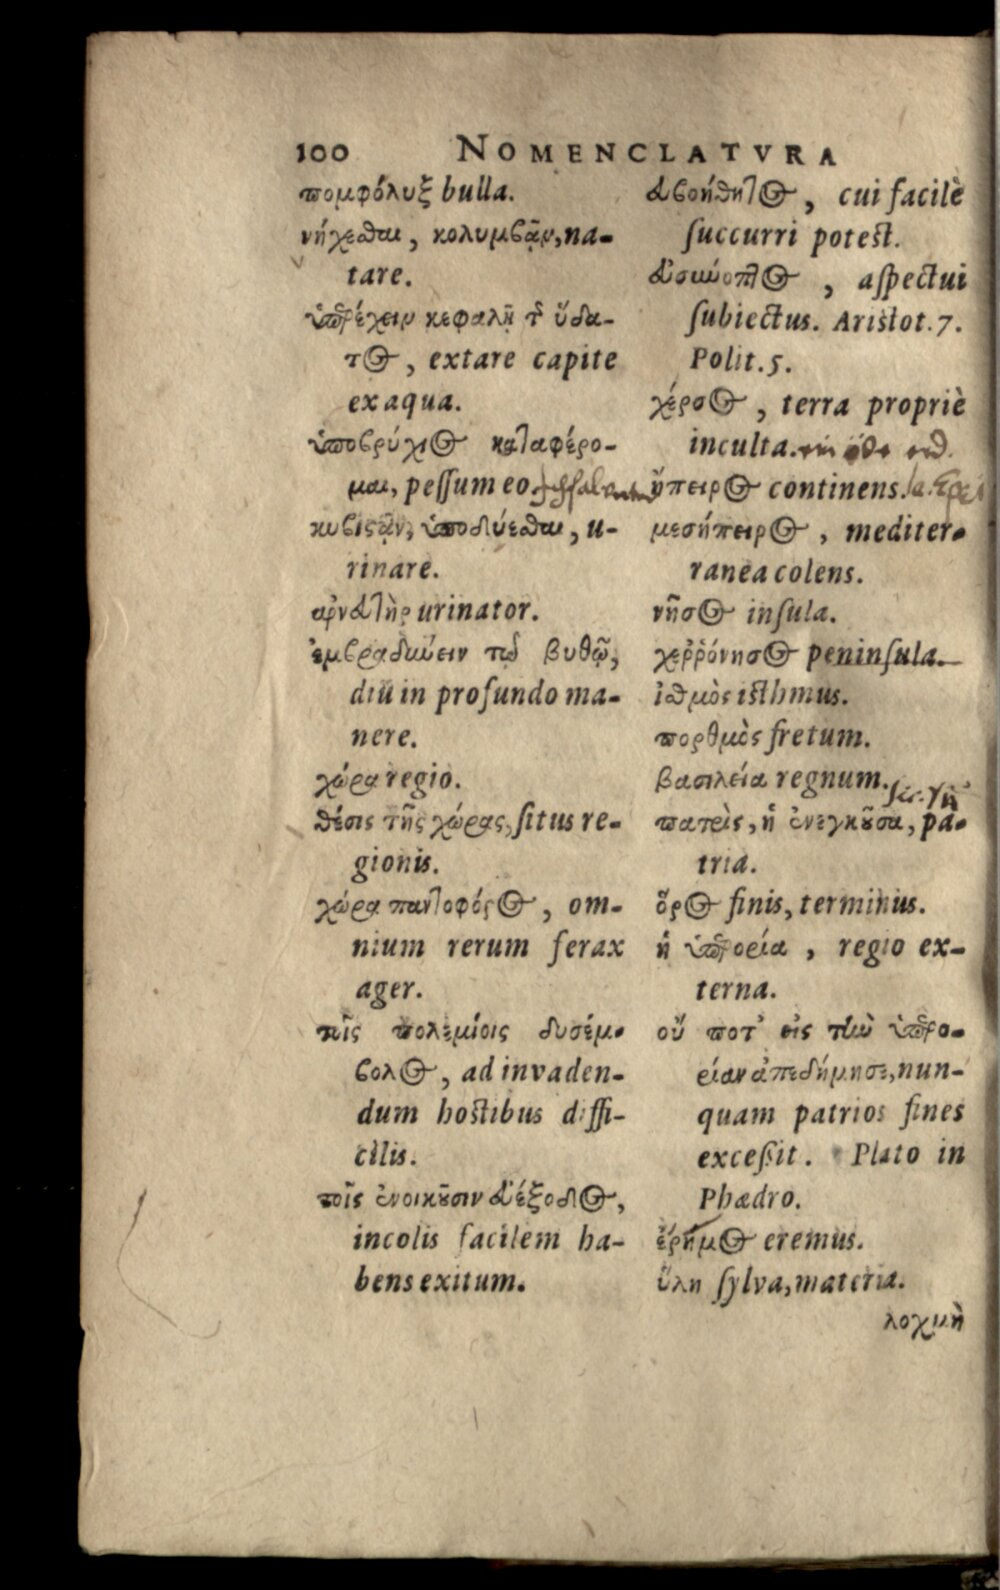 100 NOMENCLATVRA
πομφόλυξ bulla.
νήχεσθαι, κολυμβᾷν, na-
tare.
ὑπερέχειν κεφαλῇ τῦ ὕδα-
τος, extare capite
ex aqua.
ὑποβρύχιος καταφέρο-
μαι, pessum eo.
κυβιστᾷν, ὑποδύεσθαι, u-
rinare.
ἀρνευτὴρ urinator.
ἐμβραδύνειν τῷ βυθῷ,
diu in profundo ma-
nere.
χώρα regio.
θέσις τῆς χώρας, situs re-
gionis.
χώρα παντοφόρος, om-
nium rerum ferax
ager.
τοῖς πολεμίοις δυσέμ-
βολος, ad invaden-
dum hostibus diffi-
cilis.
τοῖς ἐνοικοῦσιν εὐέξοδος,
incolis facilem ha-
bens exitum.
εὐβοήθητος, cui facilè
succurri potest.
εὐσύνοπτος, aspectui
subiectus. Aristot. 7.
Polit. 5.
χέρσος, terra propriè
inculta.
ἤπειρος continens.
μεσήπειρος, mediter-
ranea colens.
νῆσος insula.
χεῤῥόνησος peninsula.
ἰσθμὸς isthmus.
πορθμὸς fretum.
βασιλεία regnum.
sc. γῆ
πατρὶς, ἡ ἐνεγκοῦσα, pa-
tria.
ὅρος finis, terminus.
ἡ ὑπερορία, regio ex-
terna.
οὔ ποτ᾽ εἰς τὴν ὑπερο-
ρίαν ἀπεδήμησε, nun-
quam patrios fines
excessit. Plato in
Phædro.
ἔρημος eremus.
ὕλη sylva, materia.
λοχμὴ